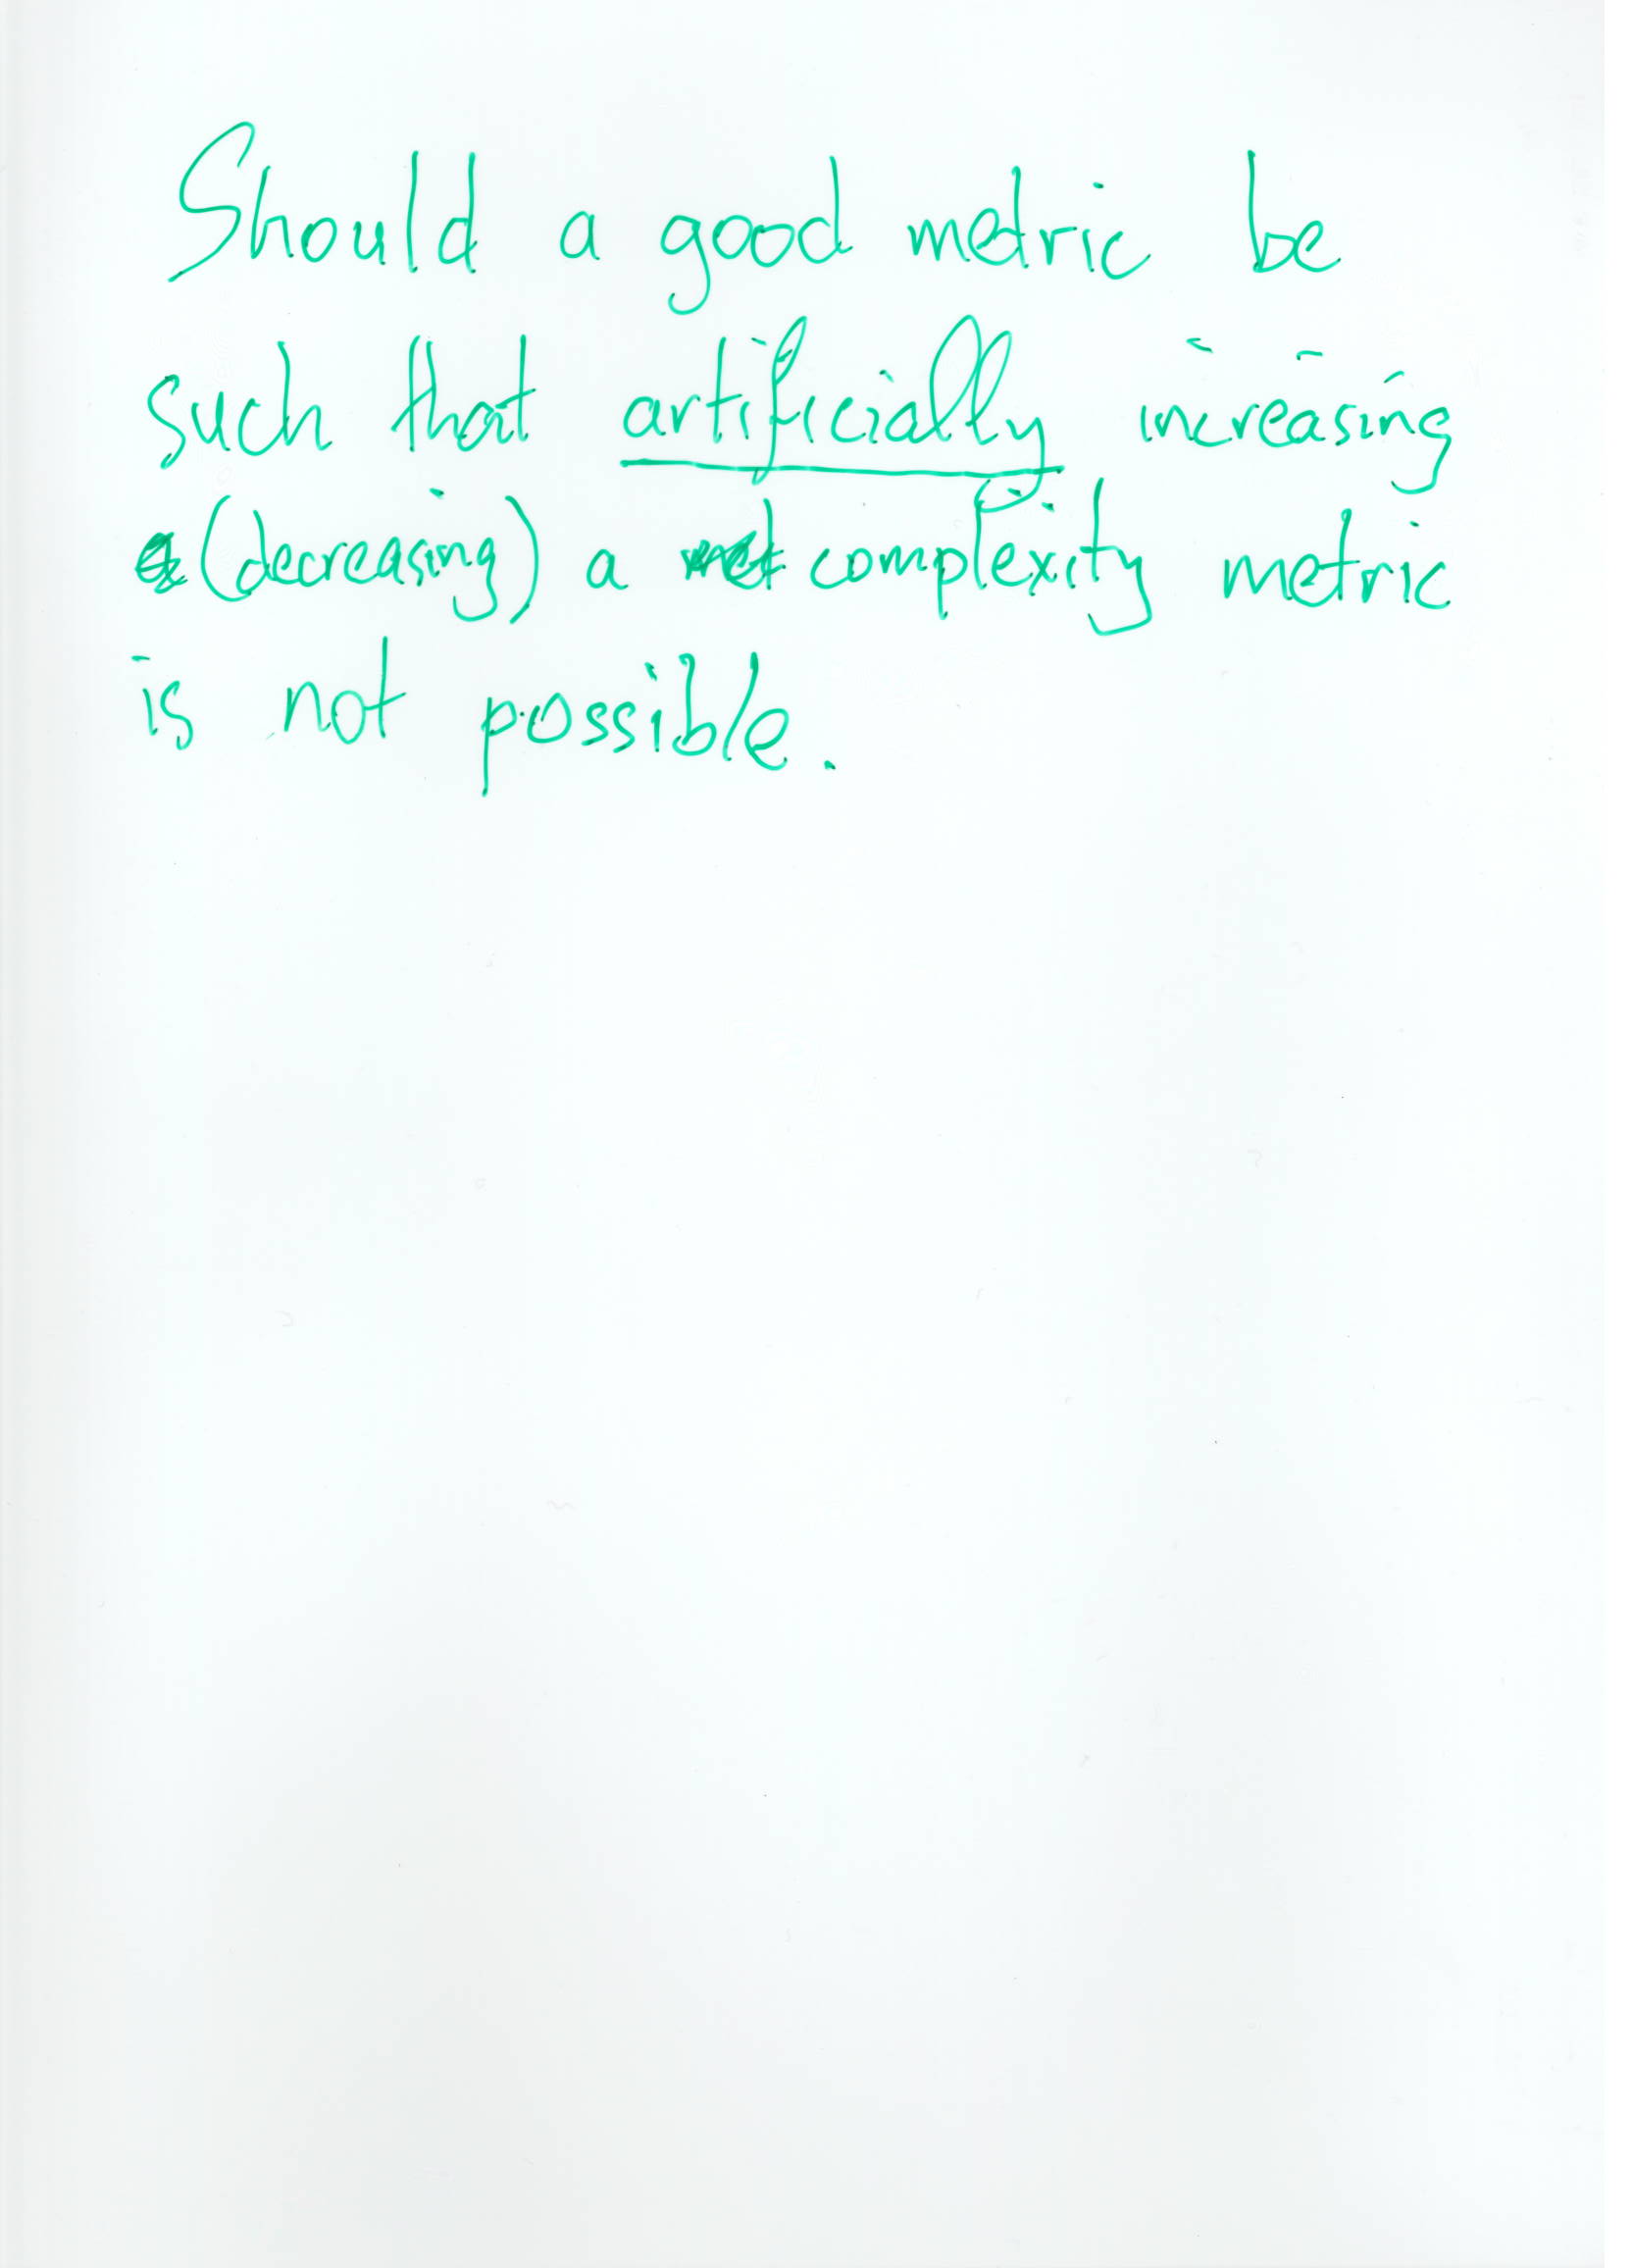 Should a good metric be
such that artificially increasing
(decreasing) a complexity metric
is not possible.